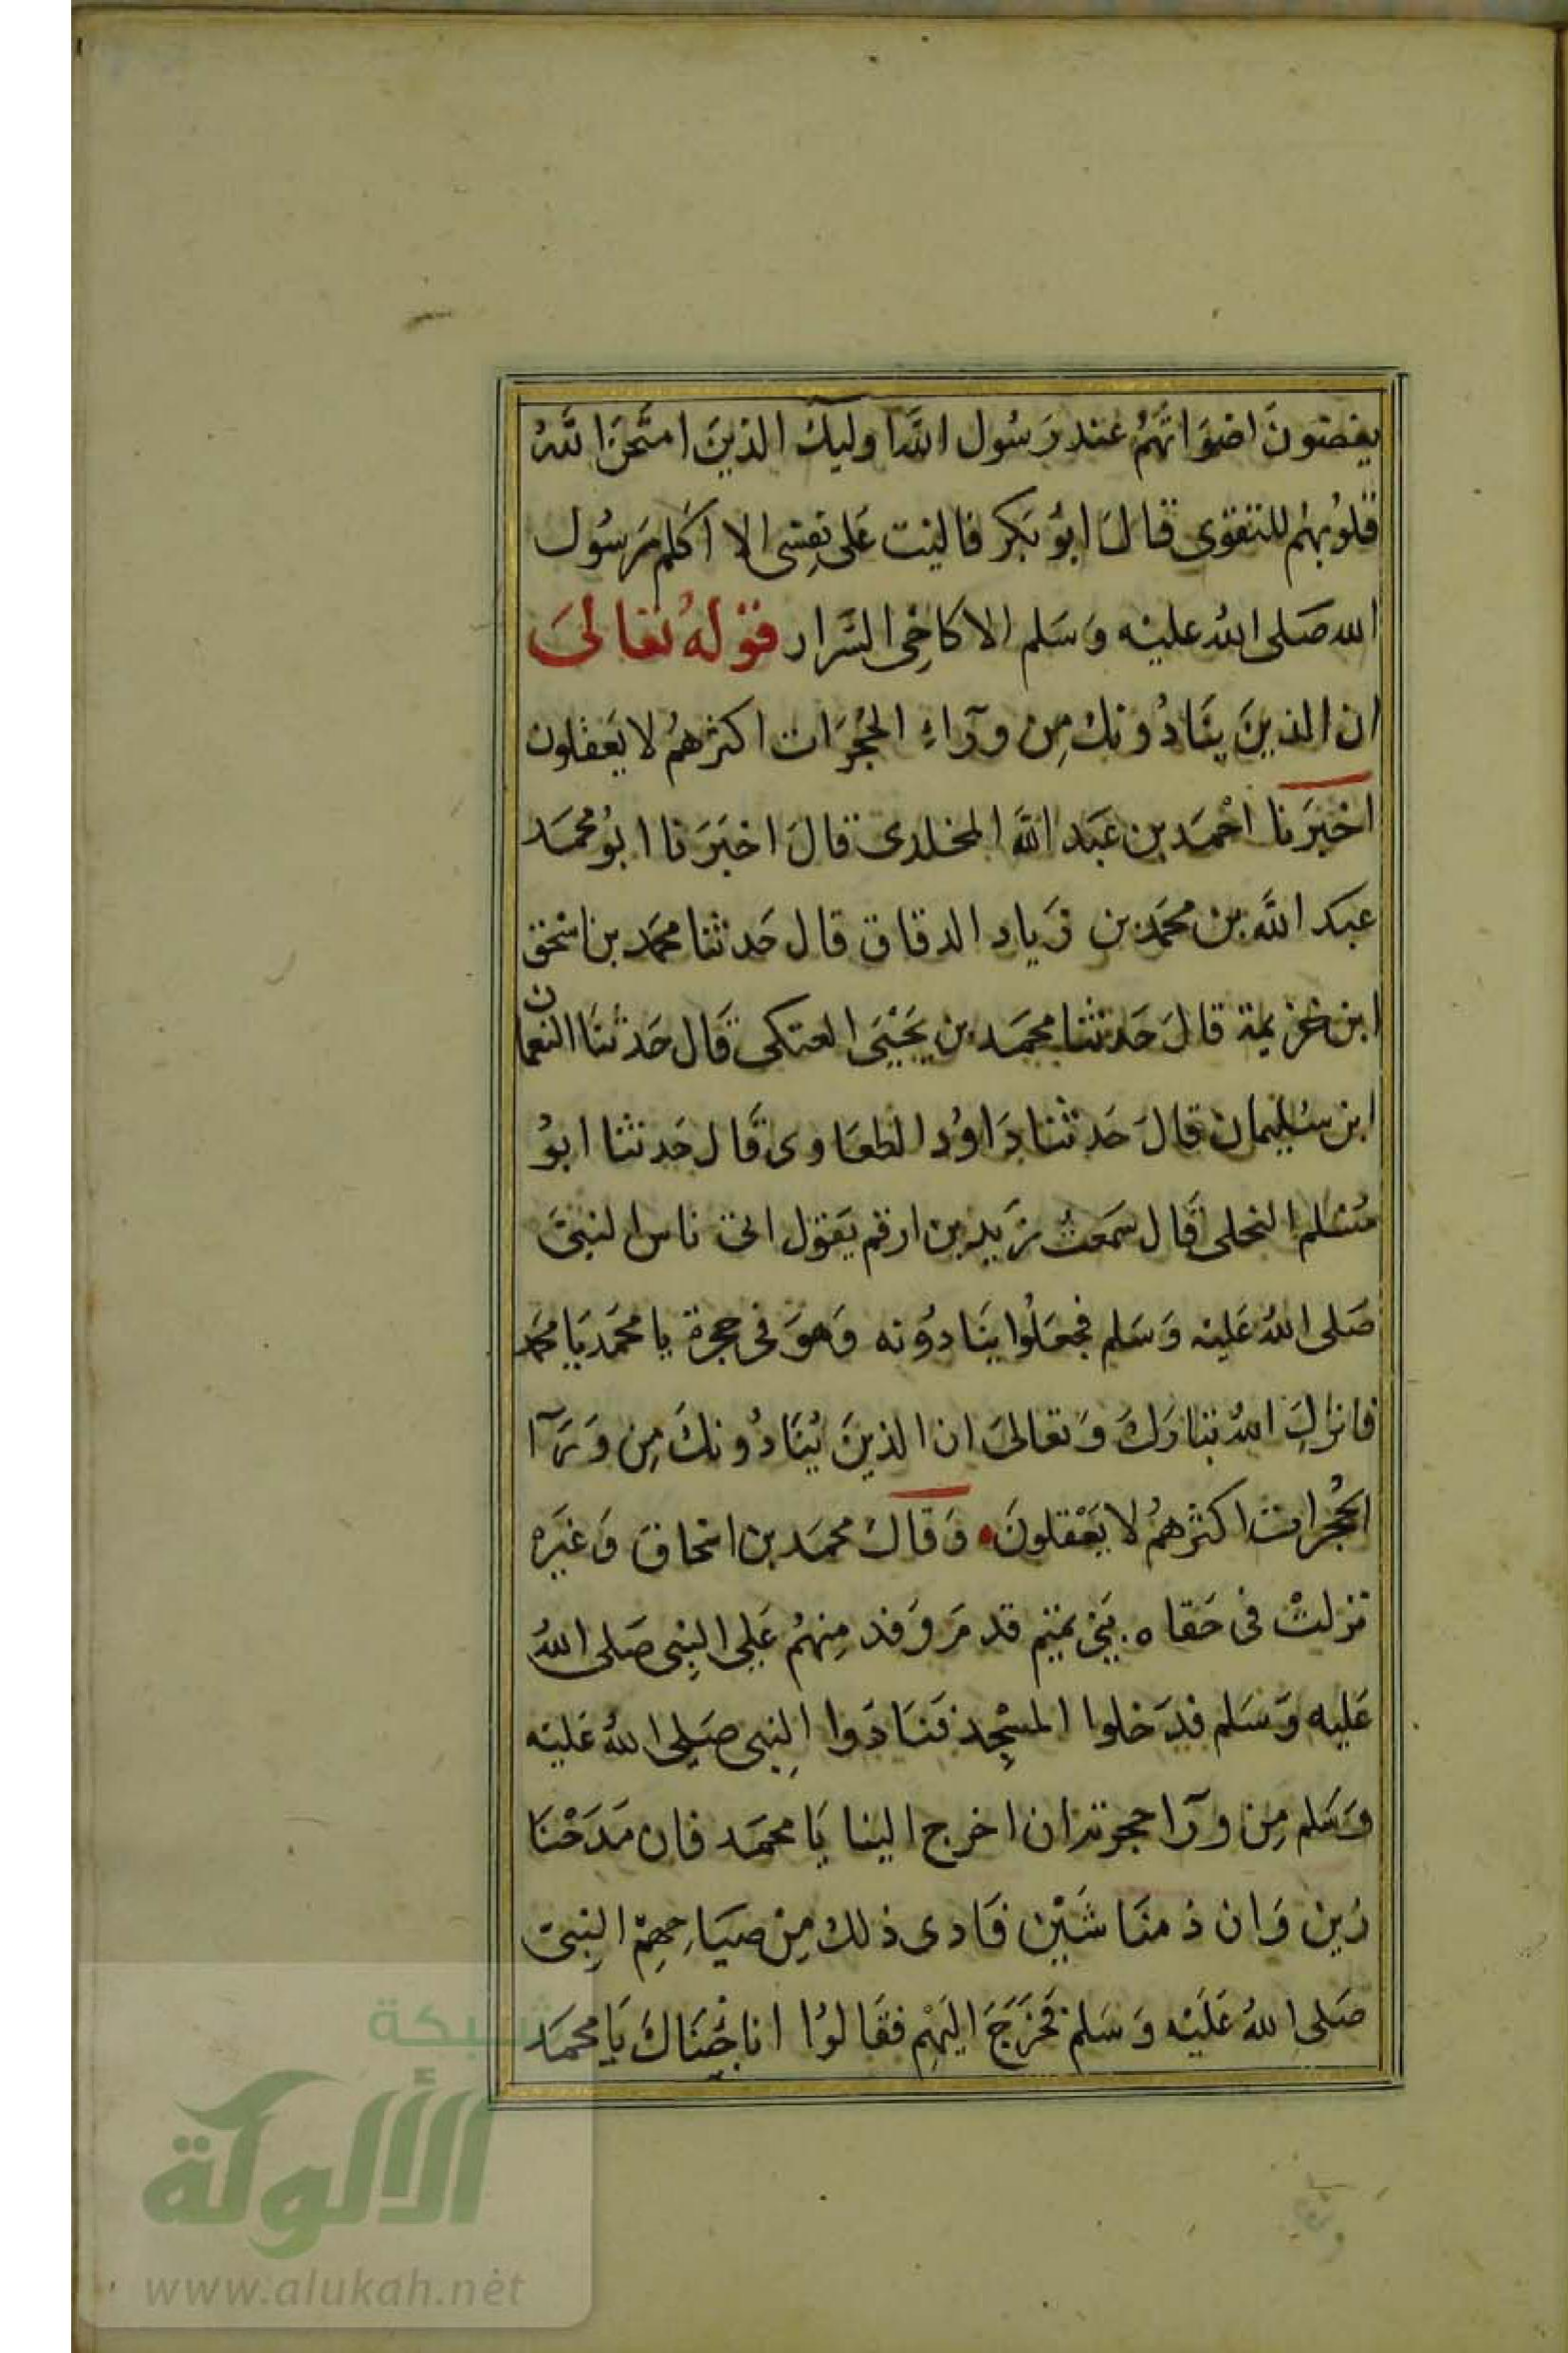 يغضون اصواتهم عند رسول الله اوليك الذين امتحن الله
قلوبهم للتقوى قال ابو بكر فاليت على نفسى الا اكلم رسول
الله صلى الله عليه وسلم الا كاخى السرار قوله تعالى
ان الذين ينادونك من ورآء الحجرات اكثرهم لا يعقلون
اخبرنا احمد بن عبد الله المخلدى قال اخبرنا ابو محمد
عبد الله بن محمد بن زياد الدقاق قال حدثنا محمد بن اسحق
ابن خزيمة قال حدثنا محمد بن يحيى العتكى قال حدثنا النعمان
ابن سليمان قال حدثنا داود الطعاوى قال حدثنا ابو
مسلم النحلى قال سمعت زيد بن ارقم يقول اتى ناس النبى
صلى الله عليه وسلم فجعلوا ينادونه وهو فى حجرة يا محمد يا محمد
فانزل الله تبارك وتعالى ان الذين ينادونك من ورآ
الحجرات اكثرهم لا يعقلون وقال محمد بن اسحاق وغيره
نزلت فى حفاه بنى تميم قدم وفد منهم على النبى صلى الله
عليه وسلم فدخلوا المسجد فنادوا النبى صلى الله عليه
وسلم من ورآ حجرته ان اخرج الينا يا محمد فان مدحنا
زين وان ذمنا شين فادى ذلك من صياحهم النبى
صلى الله عليه وسلم فخرج اليهم فقالوا انا جئناك يا محمد
شبكة
الألوكة
www.alukah.net